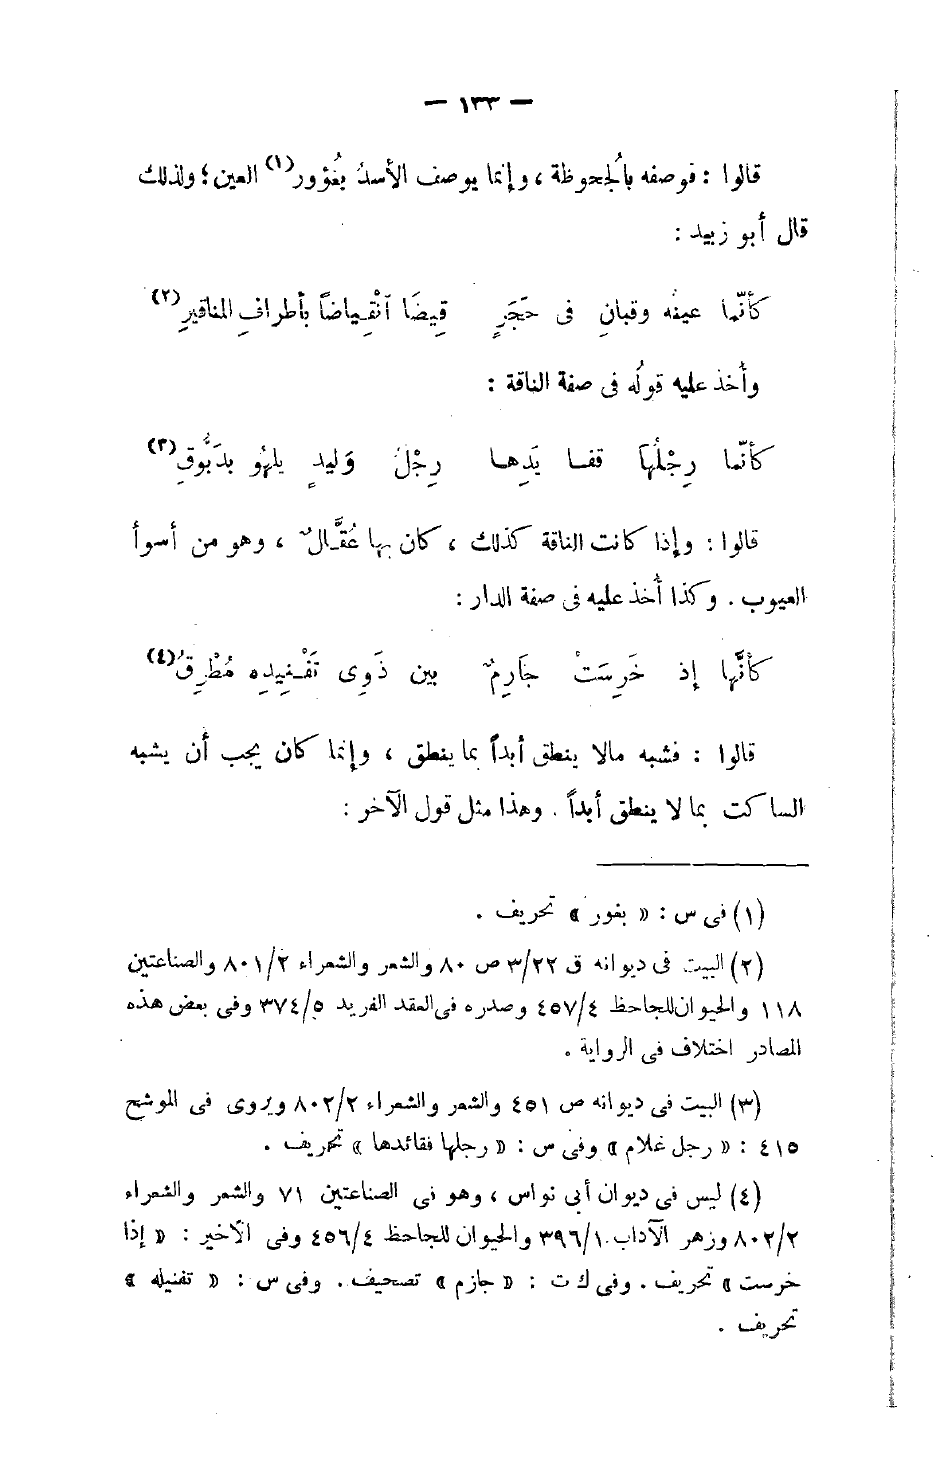 — ١٣٣ —
قالوا : فوصفه بالُجحوظة ، وإنما يوصف الأسدُ بغُؤور(١) العين ؛ ولذلك
قال أبو زبيد :
كأنّما عينه وقبانِ فى حَجَرٍ قِيضَا ٱنْقِياضاً بأطرافِ المناقيرِ(٢)
وأُخذ عليه قولُه فى صفة الناقة :
كأنّما رِجْلُها قفا يَدِها رِجْلُ وَليدٍ يلهُو بدَبُّوقِ(٣)
قالوا : وإذا كانت الناقة كذلك ، كان بها عُقَّالٌ ، وهو من أسوأ
العيوب . وكذا أُخذ عليه فى صفة الدار :
كأنَّها إذ خَرِسَتْ جَارِمٌ بين ذَوِى تَفْنِيدِه مُطْرِقُ(٤)
قالوا : فشبه مالا ينطق أبداً بما ينطق ، وإنما كان يجب أن يشبه
الساكت بما لا ينطق أبداً . وهذا مثل قول الآخر :
(١) فى س : « بفور » تحريف .
(٢) البيت فى ديوانه ق ٣/٢٢ ص ٨٠ والشعر والشعراء ٨٠١/٢ والصناعتين
١١٨ والحيوان للجاحظ ٤٥٧/٤ وصدره فى العقد الفريد ٣٧٤/٥ وفى بعض هذه
المصادر اختلاف فى الرواية .
(٣) البيت فى ديوانه ص ٤٥١ والشعر والشعراء ٨٠٢/٢ ويروى فى الموشح
٤١٥ : « رجل غلام » وفى س : « رجلها فقائدها » تحريف .
(٤) ليس فى ديوان أبى نواس ، وهو فى الصناعتين ٧١ والشعر والشعراء
٨٠٢/٢ وزهر الآداب ٣٩٦/١ والحيوان للجاحظ ٤٥٦/٤ وفى الأخير : « إذا
خرست » تحريف . وفى ك ت : « جازم » تصحيف . وفى س : « تفنيله »
تحريف .